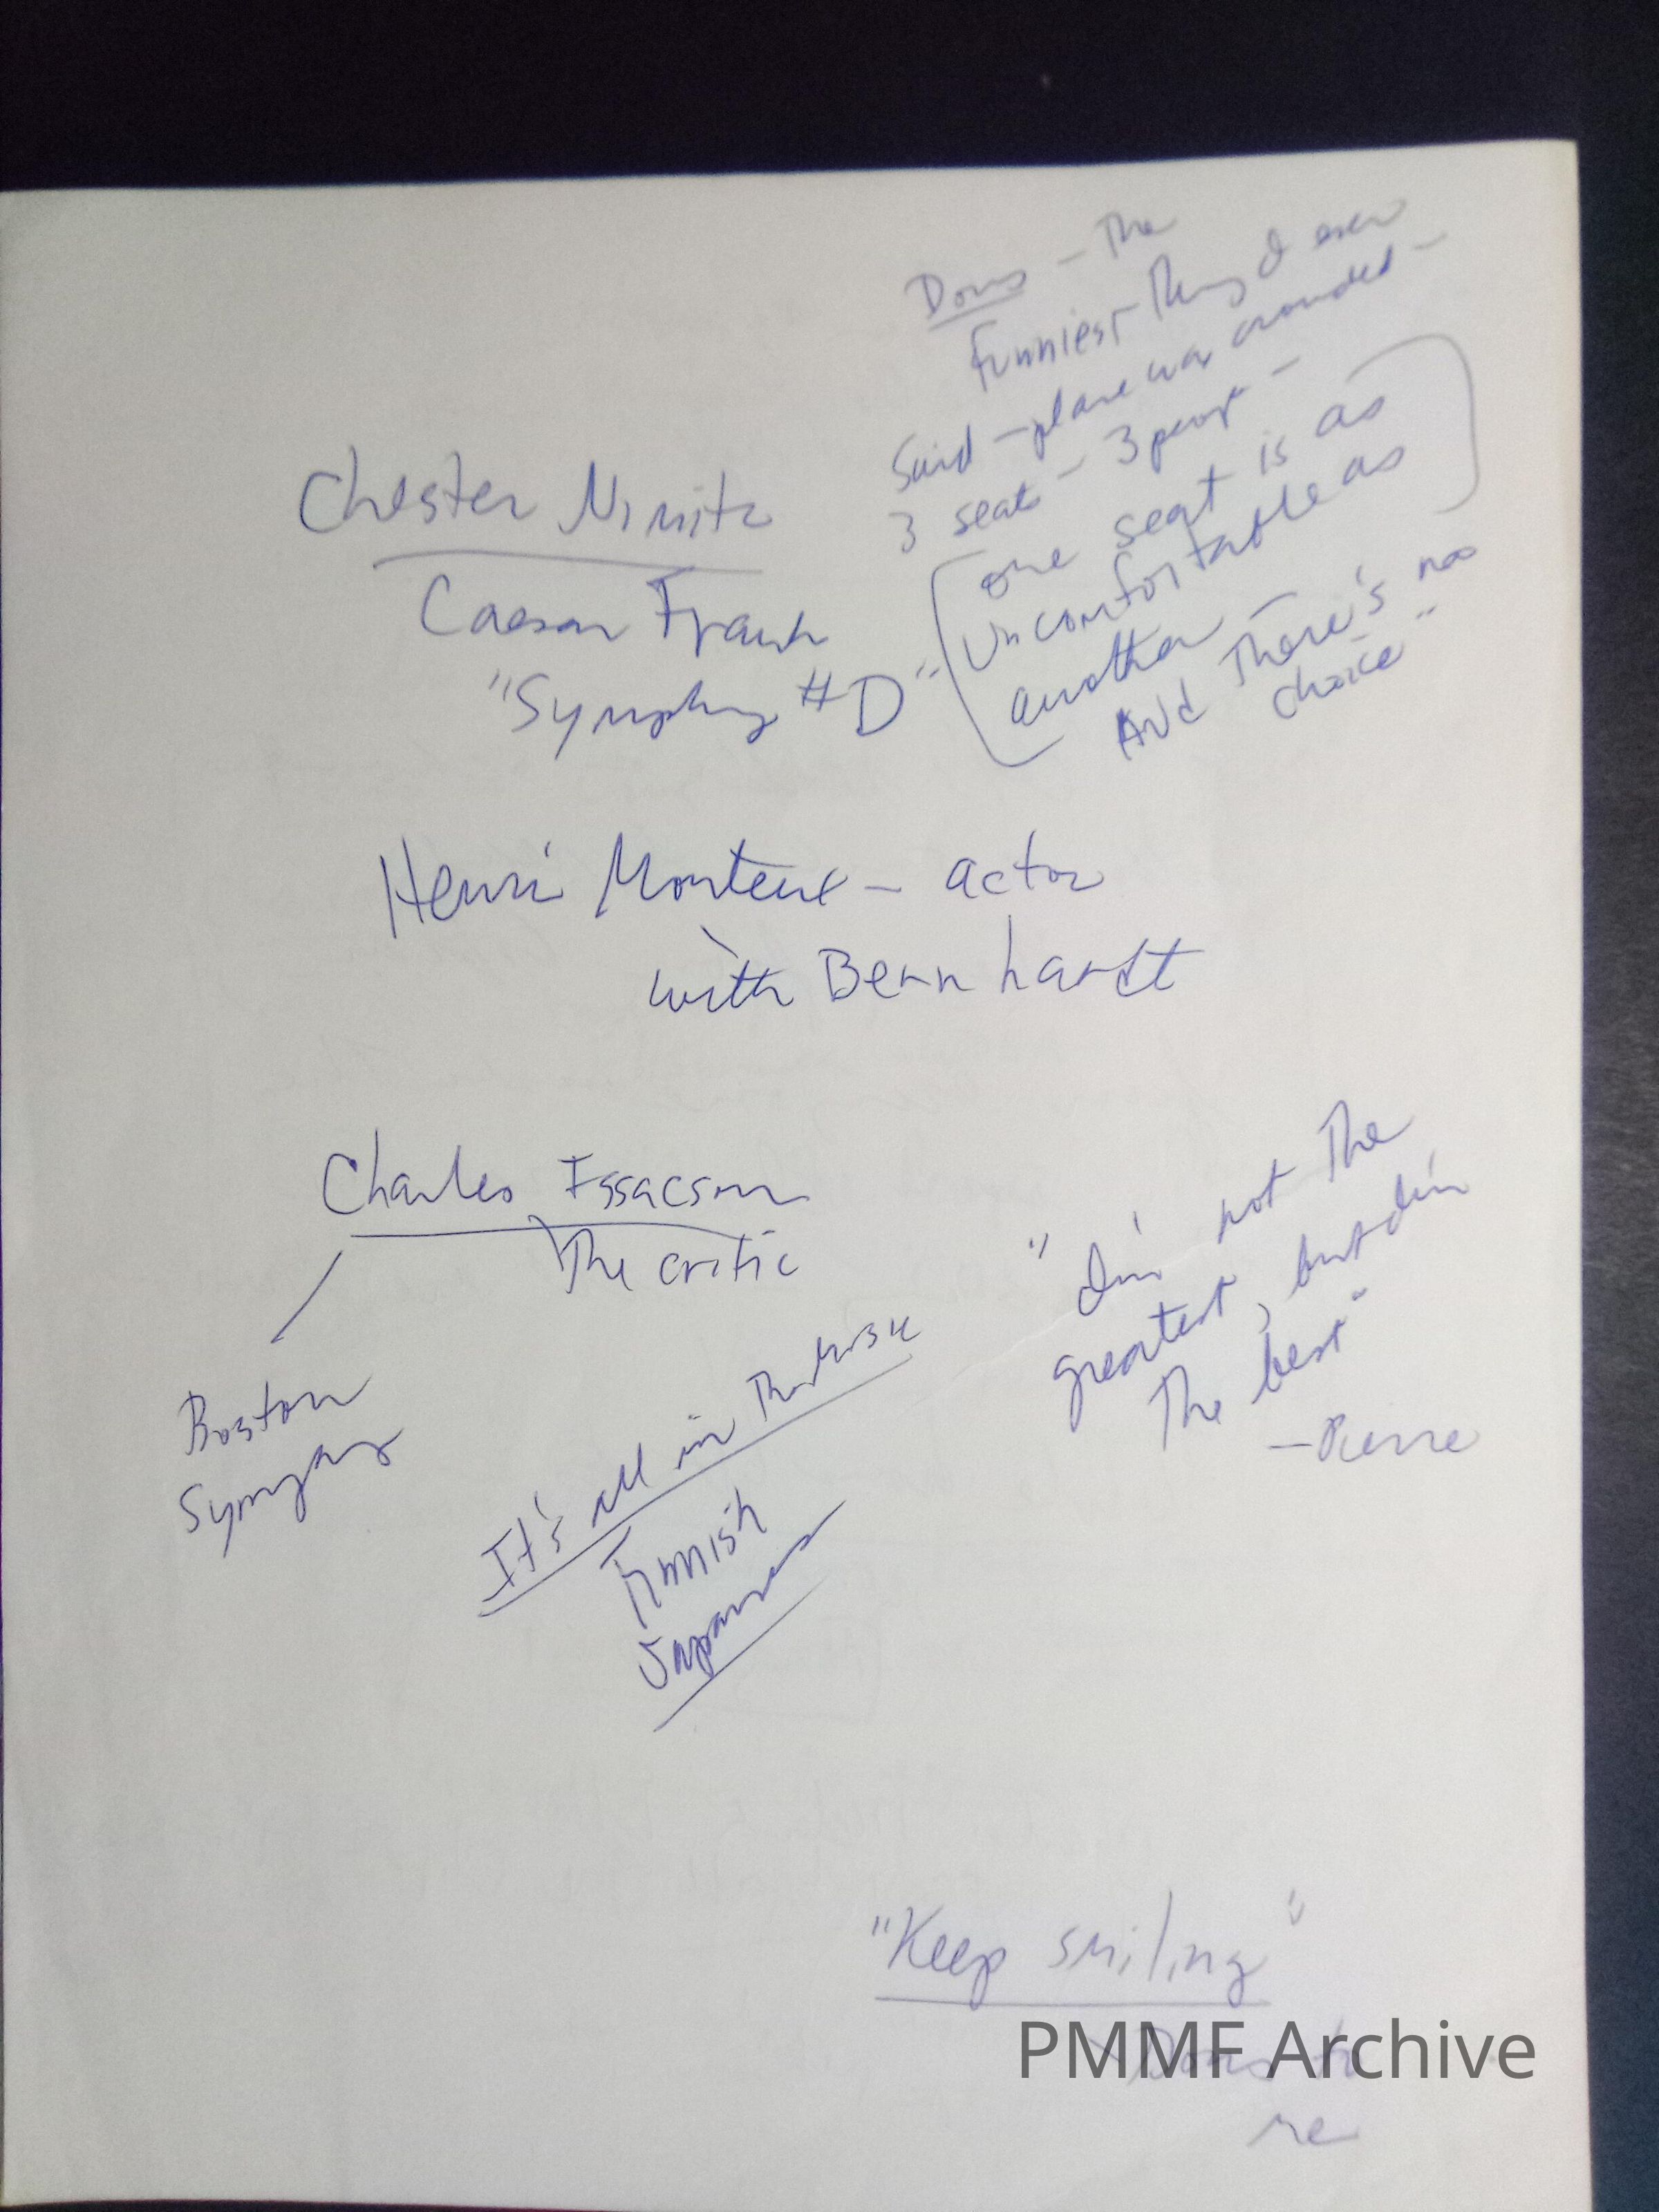 Doris - The
Funniest Thing I ever
Said - plane was crowded -
3 seats - 3 peop -
one seat is as
uncomfortable as
another -
And There's no
choice"
Chester Nimitz
Caesar Frank
"Symphony #D"
Henri Monteux - actor
with Bernhardt
Charles Issacson
The critic
Boston
Symphony
It's all in The Music
Finnish
Japanese
"I'm not The
greatest, but I'm
The best"
- Pierre
"Keep smiling"
- Doris to
me
PMMF Archive